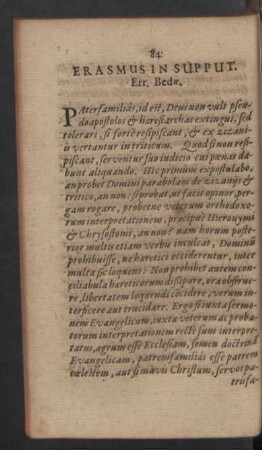 84
ERASMUS IN SUPPUT.
Err. Bedæ.
PAterfamiliâs, id est, Deus non vult pseu-
doapostolos & hæresiarchas extingui, sed
tolerari, si fortè resipiscant, & ex zizani-
is vertantur in triticum. Quod si non resi-
piscant, serventur suo iudicio cui pœnas da-
bunt aliquando. Hic primùm expostulabo,
an probet Domini parabolam de zizanijs &
tritico, an non: si probat, ut facit opinor, per-
gam rogare, probetne veterum orthodoxo-
rum interpretationem, præcipuè Hieronymi
& Chrysostomi, an non? nam horum poste-
rior multis etiam verbis inculcat, Dominũ
prohibuisse, ne hæretici occiderentur, inter
multa sic loquens: Non prohibet autem con-
ciliabula hæreticorum dissipare, ora obstrue-
re, libertatem loquendi cõcidere, verum in-
terficere aut trucidare. Ergo si iuxta sermo-
nem Evangelicum, iuxta veterum ac proba-
torum interpretationem rectè sum interpre-
tatus, agrum esse Ecclesiam, semen doctrinã
Evangelicam, patremfamiliâs esse patrem
cælestem, aut si mavis Christum, servos pa-
trisfa-